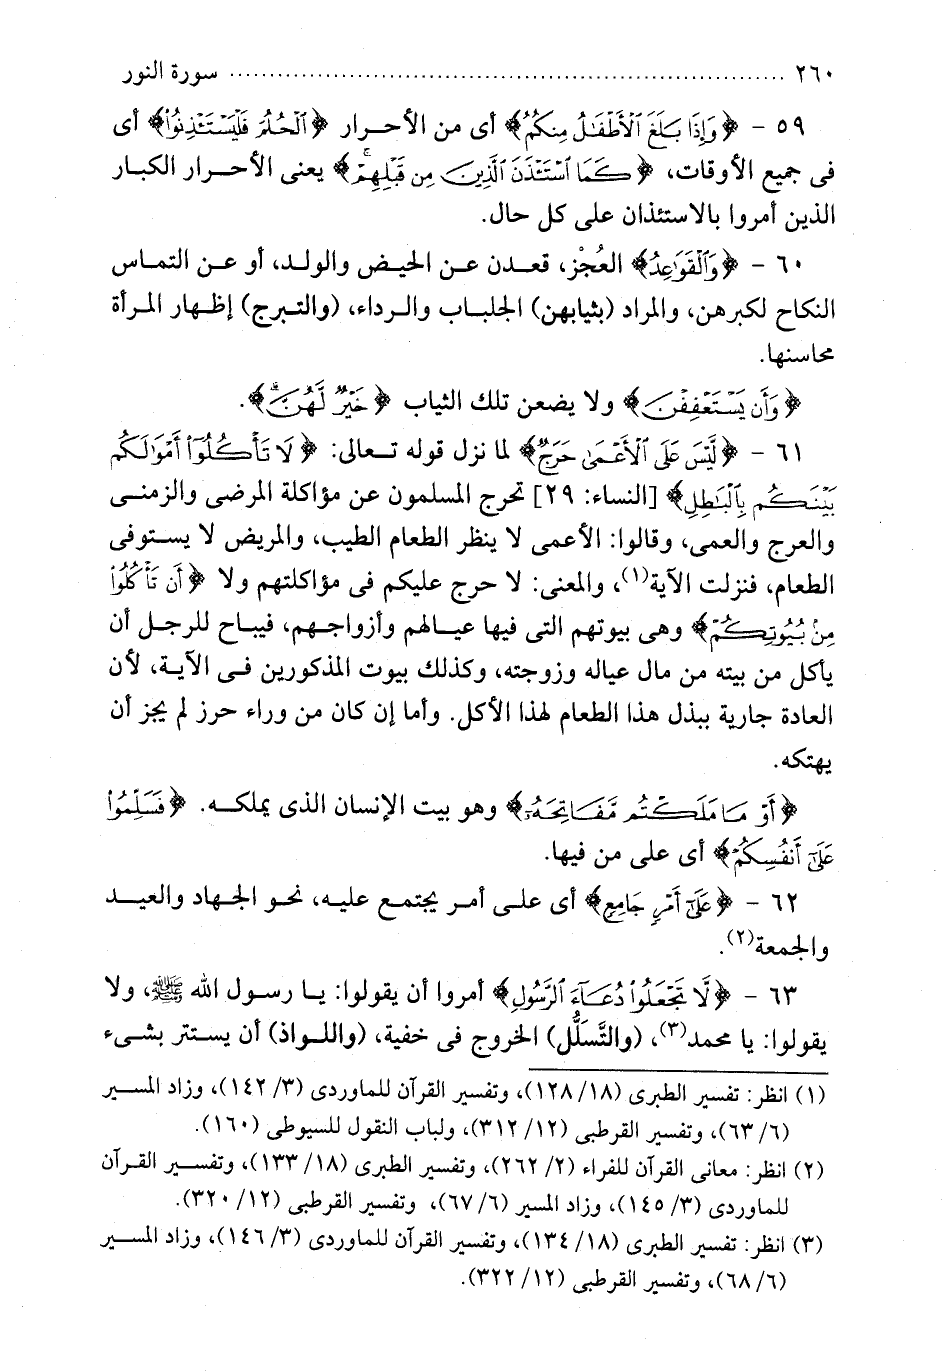 ٢٦٠ ........................................................................ سورة النور
٥٩ - ﴿وَإِذَا بَلَغَ ٱلْأَطْفَـٰلُ مِنكُمُ﴾ أى من الأحرار ﴿ٱلْحُلُمَ فَلْيَسْتَـْٔذِنُوا۟﴾ أى
فى جميع الأوقات، ﴿كَمَا ٱسْتَـْٔذَنَ ٱلَّذِينَ مِن قَبْلِهِمْ ۚ﴾ يعنى الأحرار الكبار
الذين أمروا بالاستئذان على كل حال.
٦٠ - ﴿وَٱلْقَوَٰعِدُ﴾ العُجْز، قعدن عن الحيض والولد، أو عن التماس
النكاح لكبرهن، والمراد (بثيابهن) الجلباب والرداء، (والتبرج) إظهار المرأة
محاسنها.
﴿وَأَن يَسْتَعْفِفْنَ﴾ ولا يضعن تلك الثياب ﴿خَيْرٌ لَّهُنَّ ۗ﴾.
٦١ - ﴿لَّيْسَ عَلَى ٱلْأَعْمَىٰ حَرَجٌ﴾ لما نزل قوله تعالى: ﴿لَا تَأْكُلُوٓا۟ أَمْوَٰلَكُم
بَيْنَكُم بِٱلْبَـٰطِلِ﴾ [النساء: ٢٩] تحرج المسلمون عن مؤاكلة المرضى والزمنى
والعرج والعمى، وقالوا: الأعمى لا ينظر الطعام الطيب، والمريض لا يستوفى
الطعام، فنزلت الآية(١)، والمعنى: لا حرج عليكم فى مؤاكلتهم ولا ﴿أَن تَأْكُلُوا۟
مِنۢ بُيُوتِكُمْ﴾ وهى بيوتهم التى فيها عيالهم وأزواجهم، فيباح للرجل أن
يأكل من بيته من مال عياله وزوجته، وكذلك بيوت المذكورين فى الآية، لأن
العادة جارية ببذل هذا الطعام لهذا الأكل. وأما إن كان من وراء حرز لم يجز أن
يهتكه.
﴿أَوْ مَا مَلَكْتُم مَّفَاتِحَهُۥٓ﴾ وهو بيت الإنسان الذى يملكه. ﴿فَسَلِّمُوا۟
عَلَىٰٓ أَنفُسِكُمْ﴾ أى على من فيها.
٦٢ - ﴿عَلَىٰٓ أَمْرٍ جَامِعٍ﴾ أى على أمر يجتمع عليه، نحو الجهاد والعيد
والجمعة(٢).
٦٣ - ﴿لَّا تَجْعَلُوا۟ دُعَآءَ ٱلرَّسُولِ﴾ أمروا أن يقولوا: يا رسول الله ﷺ، ولا
يقولوا: يا محمد(٣)، (والتَّسَلُّل) الخروج فى خفية، (واللواذ) أن يستتر بشىء
(١) انظر: تفسير الطبرى (١٢٨/١٨)، وتفسير القرآن للماوردى (١٤٢/٣)، وزاد المسير
(٦٣/٦)، وتفسير القرطبى (٣١٢/١٢)، ولباب النقول للسيوطى (١٦٠).
(٢) انظر: معانى القرآن للفراء (٢٦٢/٢)، وتفسير الطبرى (١٣٣/١٨)، وتفسير القرآن
للماوردى (١٤٥/٣)، وزاد المسير (٦٧/٦)، وتفسير القرطبى (٣٢٠/١٢).
(٣) انظر: تفسير الطبرى (١٣٤/١٨)، وتفسير القرآن للماوردى (١٤٦/٣)، وزاد المسير
(٦٨/٦)، وتفسير القرطبى (٣٢٢/١٢).